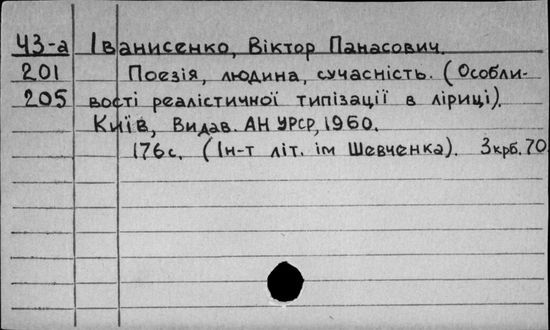 ЧЗ-а Іванисенко, Віктор Панасович.
201 Поезія, людина, сучасність. (Особли-
205 вості реалістичної типізації в ліриці).
Київ, Видав. АН УРСР, 1960.
176с. (Ін-т літ. ім Шевченка). 3крб.70